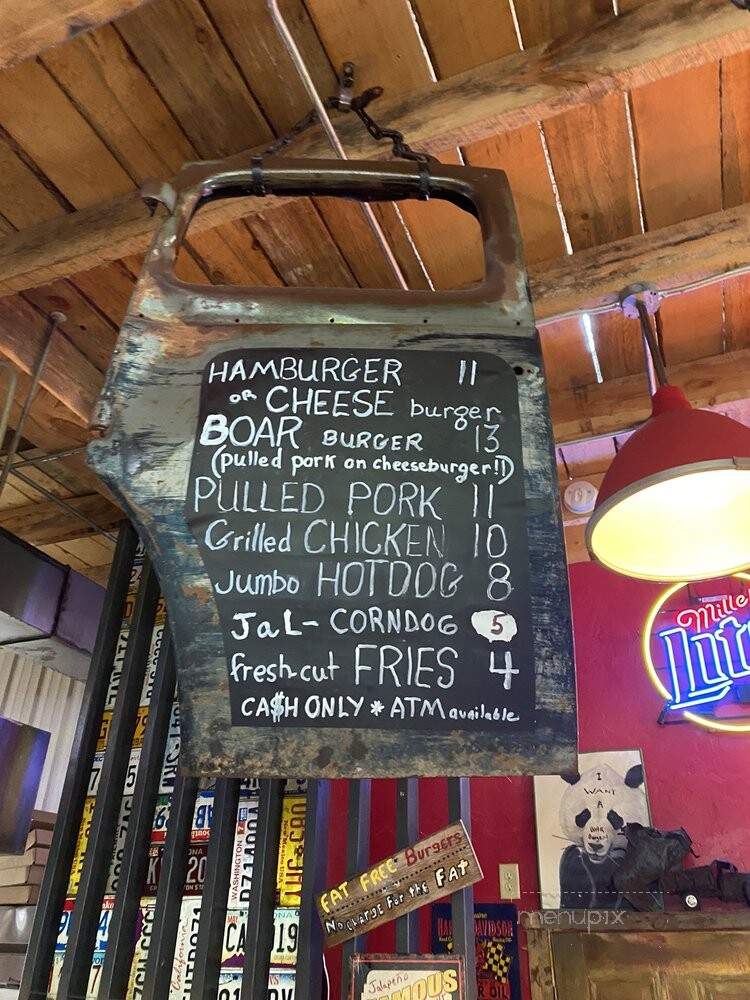 HAMBURGER 11
OR CHEESE burger
BOAR BURGER 13
(pulled pork on cheeseburger!)
PULLED PORK 11
Grilled CHICKEN 10
Jumbo HOTDOG 8
JaL- CORNDOG 5
fresh-cut FRIES 4
CA$H ONLY * ATM available
Miller
Lite
I
WANT
A
FAT FREE Burgers
No Charge For the FAT
HARLEY-DAVIDSON
Jalapeño
FAMOUS
WASHINGTON
California
menupix